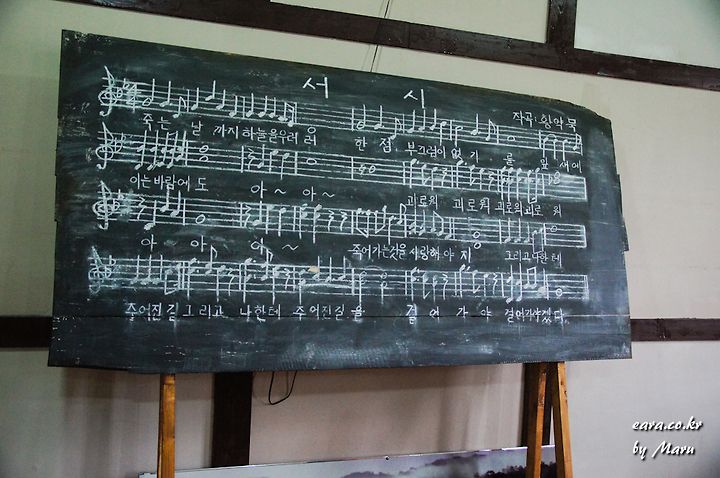 서 시
작곡: 황악묵
죽는 날 까지 하늘을 우러 러 한 점 부끄럼이 없 기 를 잎 새 에
이는 바람에 도 아 ~ 아 ~ 괴로워 괴로워 괴로워 괴로 워
아 ~ 아 ~ 아 ~ 죽어가는것을 사랑해 야 지 그리고 나한 테
주어진 길 그 리 고 나 한 테 주 어 진 길 을 걸 어 가 야 걸어가야겠다
eara.co.kr
by Maru